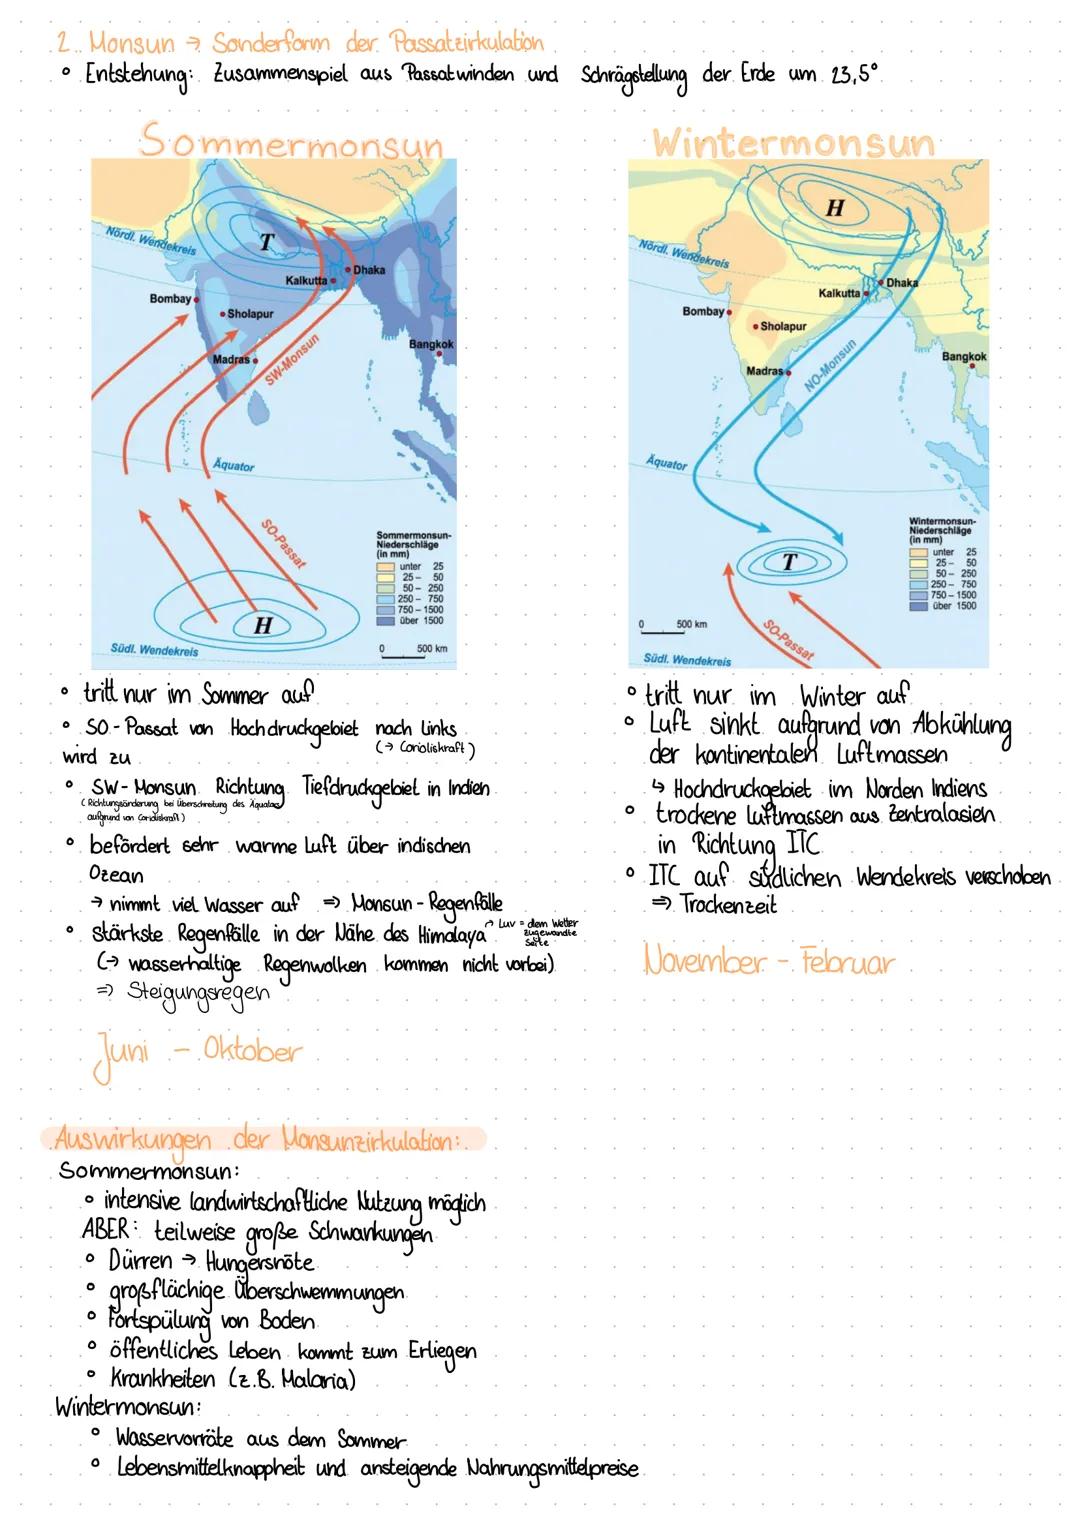 2. Monsun → Sonderform der Passatzirkulation
° Entstehung: Zusammenspiel aus Passatwinden und Schrägstellung der Erde um 23,5°
Sommermonsun
Nördl. Wendekreis
T
Kalkutta
Dhaka
Bombay
Sholapur
Madras
Bangkok
SW-Monsun
Äquator
SO-Passat
H
Südl. Wendekreis
Sommermonsun-
Niederschläge
(in mm)
unter 25
25 – 50
50 – 250
250 – 750
750 – 1500
über 1500
0 500 km
° tritt nur im Sommer auf
° SO-Passat von Hochdruckgebiet nach links
(→ Corioliskraft)
wird zu
° SW-Monsun Richtung Tiefdruckgebiet in Indien
(Richtungsänderung bei Überschreitung des Äquators
aufgrund von Corioliskraft)
° befördert sehr warme Luft über indischen
Ozean
→ nimmt viel Wasser auf ⇒ Monsun-Regenfälle
° stärkste Regenfälle in der Nähe des Himalaya
↗ Luv = dem Wetter
zugewandte
Seite
(→ wasserhaltige Regenwolken kommen nicht vorbei)
⇒ Steigungsregen
Juni - Oktober
Wintermonsun
H
Nördl. Wendekreis
Dhaka
Kalkutta
Bombay
Sholapur
Madras
Bangkok
NO-Monsun
Äquator
T
Wintermonsun-
Niederschläge
(in mm)
unter 25
25 – 50
50 – 250
250 – 750
750 – 1500
über 1500
0 500 km
SO-Passat
Südl. Wendekreis
° tritt nur im Winter auf
° Luft sinkt aufgrund von Abkühlung
der kontinentalen Luftmassen
↳ Hochdruckgebiet im Norden Indiens
° trockene Luftmassen aus Zentralasien
in Richtung ITC
° ITC auf südlichen Wendekreis verschoben
⇒ Trockenzeit
November - Februar
Auswirkungen der Monsunzirkulation:
Sommermonsun:
° intensive landwirtschaftliche Nutzung möglich
ABER: teilweise große Schwankungen
° Dürren → Hungersnöte
° großflächige Überschwemmungen
° Fortspülung von Boden
° öffentliches Leben kommt zum Erliegen
° Krankheiten (z.B. Malaria)
Wintermonsun:
° Wasservorräte aus dem Sommer
° Lebensmittelknappheit und ansteigende Nahrungsmittelpreise